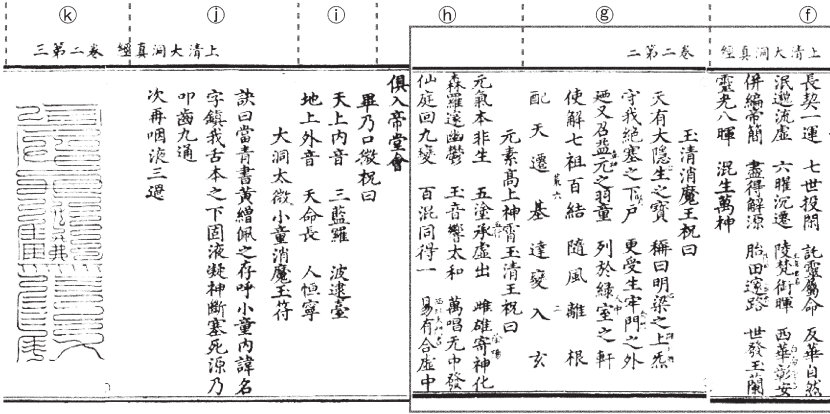 ⓚ ⓙ ⓘ ⓗ ⓖ ⓕ
上清大洞真經
卷二第二
上清大洞真經 卷二第三
長契一運 七世投閑 託靈屬命 反華自然
泯遯流虛 六曜沉遷 陵梵街暉 西華彰安
併編帝簡 盡得解源 胎田邃路 世發玉蘭
靈光八暉 混生萬神
玉清消魔王祝曰
天有大隱生之寶 稱曰明梁之上炁
守我絕塞之下戶 更受生牢門之外
迺又召益元之羽童 列於綠室之軒
使解七祖百結 隨風離根
配天遷基達變入玄
元素高上神霄玉清王祝曰
元氣本非生 五塗承虛出 雌雄寄神化
森羅邃幽鬱 玉音響太和 萬唱元中發
仙庭回九變 百混同得一 易有合虛中
俱入帝堂會
畢乃口微祝曰
天上內音 三藍羅 波逮臺
地上外音 天命長 人恒寧
大洞太微小童消魔玉符
訣曰當青書黃繒佩之存呼小童內諱名
字鎮我舌本之下固液凝神斷塞死源乃
叩齒九通
次再咽液三過